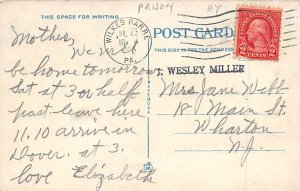 PRISON EY
THIS SPACE FOR WRITING
WILKES BARRE
PA.
POST CARD
THIS SIDE IS FOR THE ADDRESS
2 CENTS 2
T. WESLEY MILLER
Mother,
We will
be home tomorrow
Sat at 3 or half
past leave here
11.10 arrive in
Dover at 3.
love Elizabeth
Mrs Jane Webb
18 Main St.
Wharton
N.J.